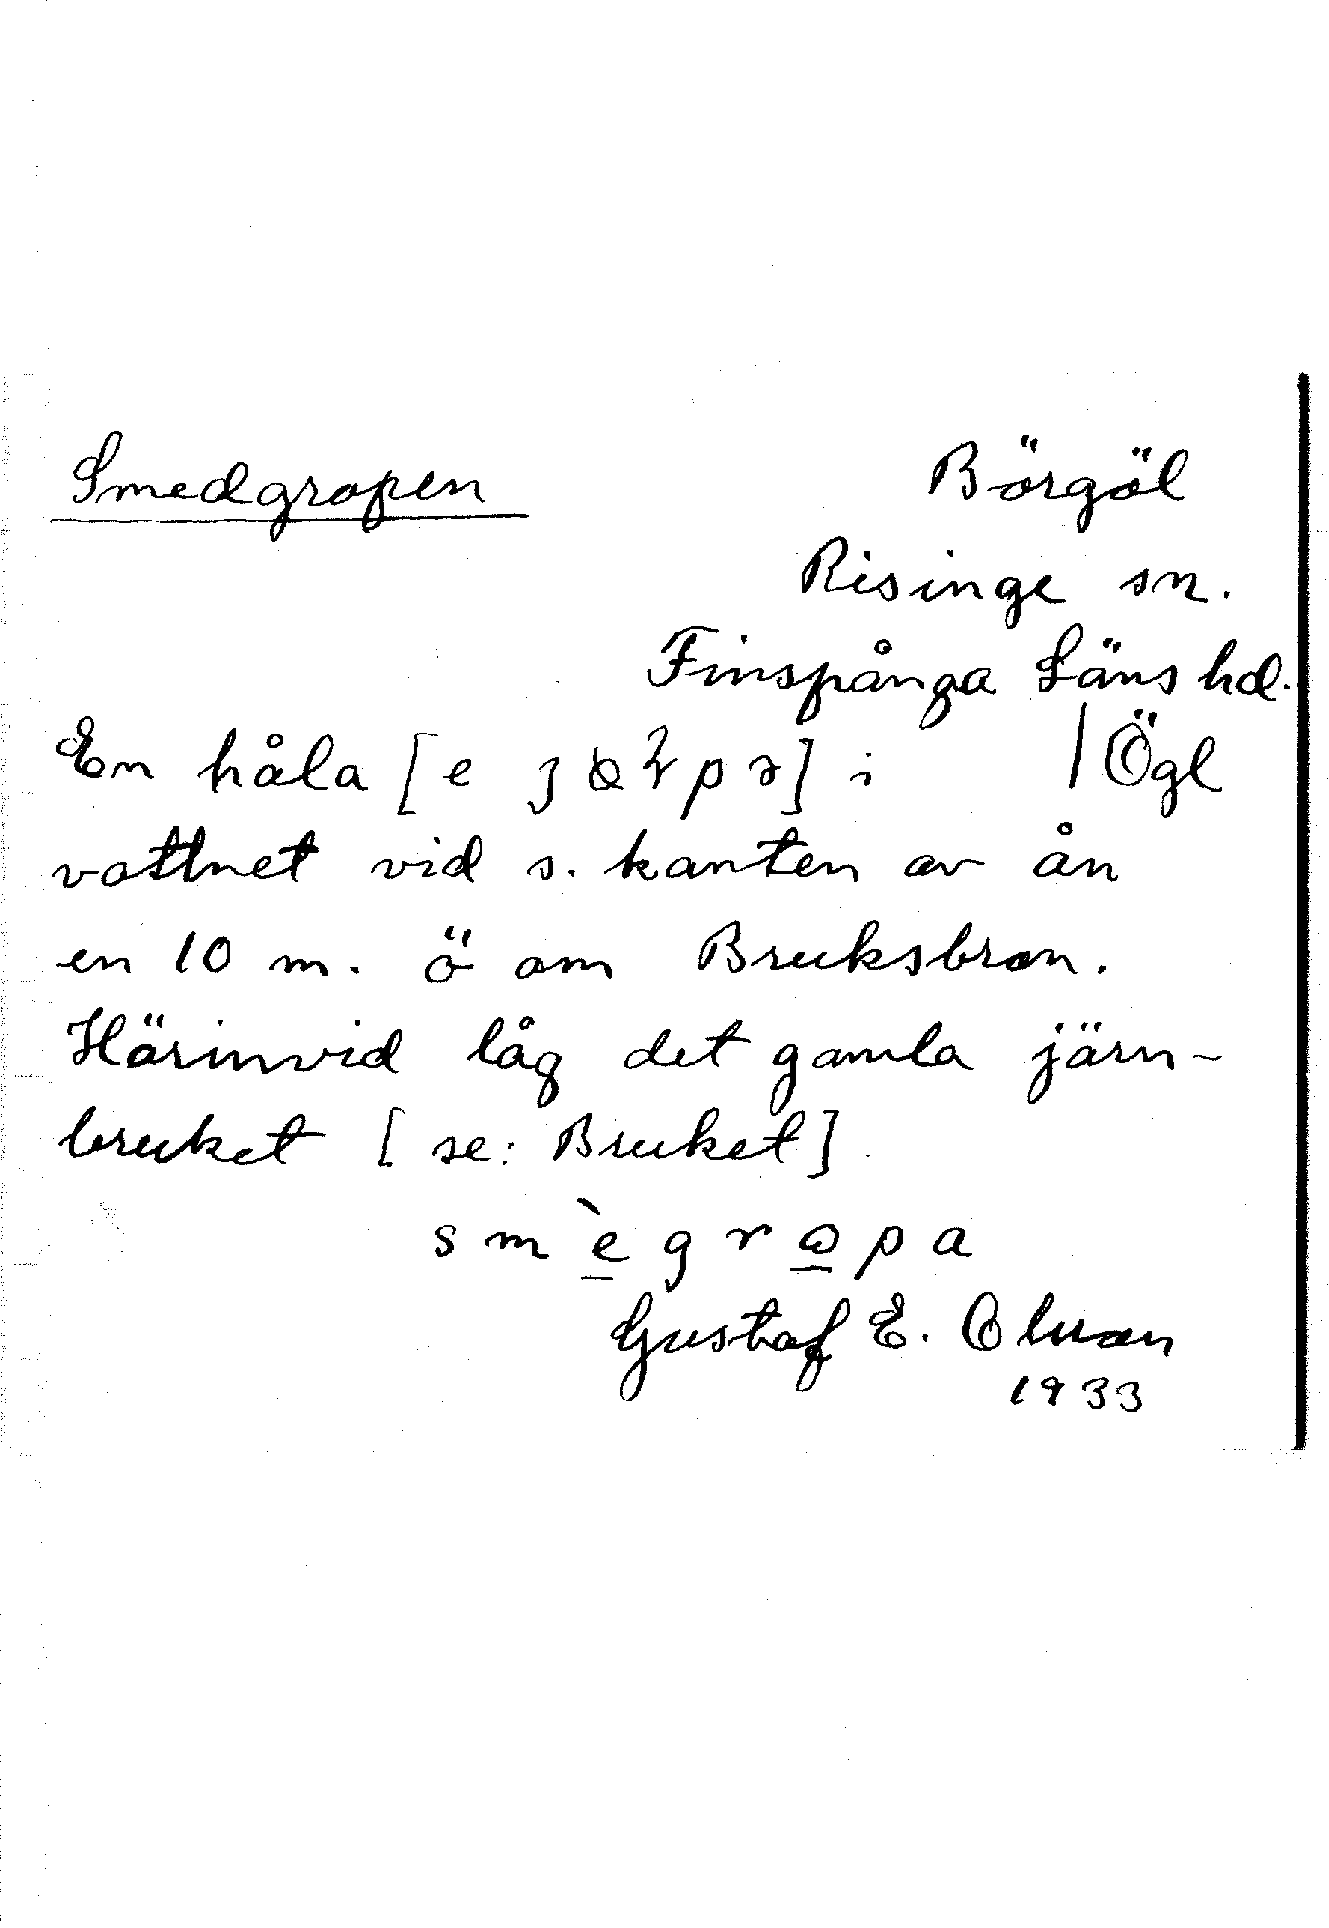 Smedgropen
Börgöl
Risinge sn.
Finspånga Läns hd.
En håla [e
] i
| Ögl
vattnet vid s. kanten av ån
en 10 m. ö om Bruksbron.
Härinvid låg det gamla järn-
bruket [se: Bruket]
Gustaf E.
1933